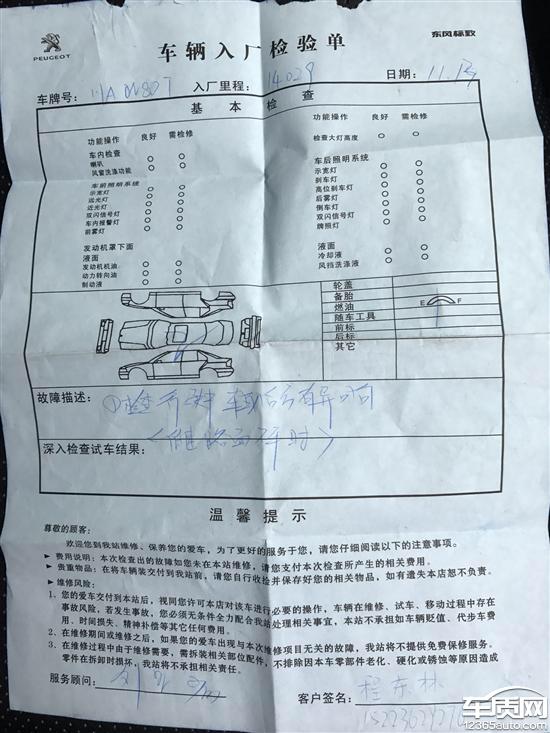 PEUGEOT
车辆入厂检验单
东风标致
车牌号：
入厂里程：14029
日期：11.
基本检查
功能操作 良好 需检修
功能操作 良好 需检修
车内检查
喇叭
风窗洗涤功能
检查大灯高度
车前照明系统
示宽灯
远光灯
近光灯
双闪信号灯
车内报警灯
前雾灯
车后照明系统
示宽灯
刹车灯
高位刹车灯
后雾灯
倒车灯
双闪信号灯
牌照灯
发动机罩下面
液面
发动机机油
动力转向油
制动液
液面
冷却液
风挡洗涤液
轮盖
备胎
燃油 E F
随车工具
前标
后标
其它
故障描述：①检 行驶 车 后方有异响
（ 路面 时）
深入检查试车结果：
温馨提示
尊敬的顾客：
欢迎您到我站维修、保养您的爱车，为了更好的服务于您，请您仔细阅读以下的注意事项。
► 费用说明：本次检查出的故障如您未在本站维修，请您支付本次检查所产生的相关费用。
► 贵重物品：在将车辆装交付到我站前，请您自行收拾并保存好您的相关物品，如有遗失本店恕不负责。
► 维修风险：
1、您的爱车交付到本站后，视同您许可本店对该车进行必要的操作，车辆在维修、试车、移动过程中存在
事故风险，若发生事故，您必须无条件全力配合我站处理相关事宜，本站不承担如车辆贬值、代步车费
用、时间损失、精神补偿等其它任何费用。
2、在维修期间或维修之后，如果您的爱车出现与本次维修项目无关的故障，我站将不提供免费保修服务。
3、在维修过程中由于维修需要，需拆装相关部位配件，不排除因本车零部件老化、硬化或锈蚀等原因造成
零件在拆卸时损坏，我站将不承担相关责任。
服务顾问：
客户签名：程东林
车质网
12365auto.com